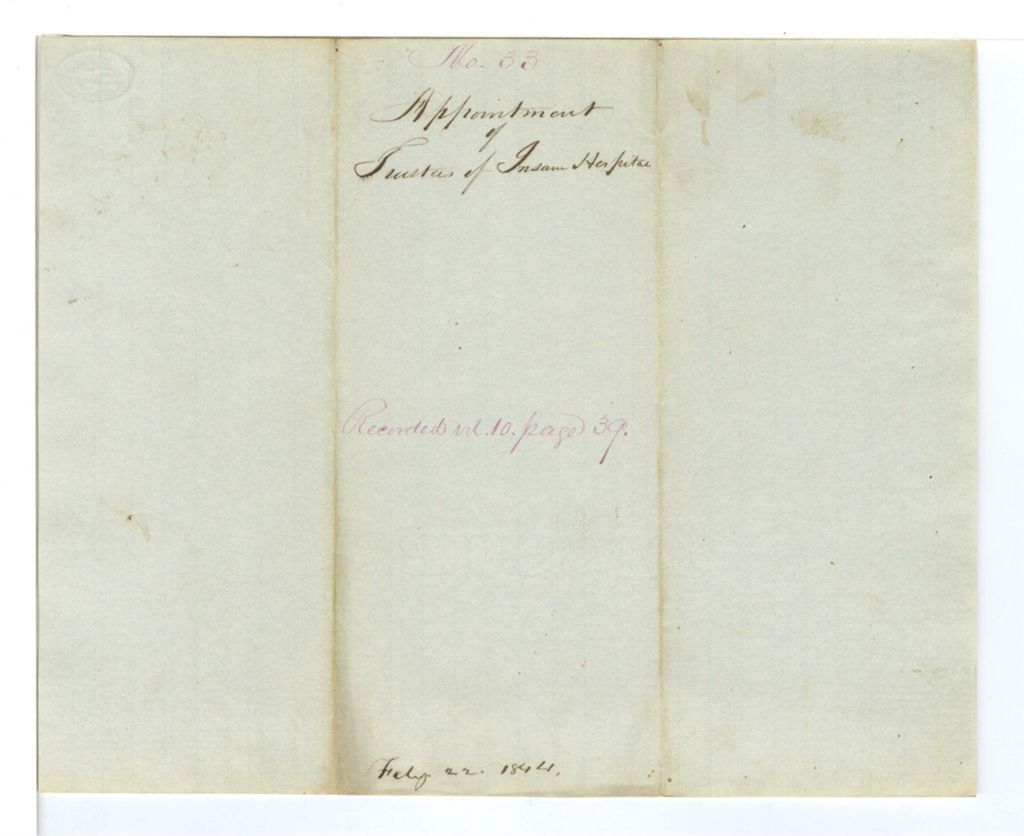 No. 33
Appointment
of
Trustees of Insane Hospital
Recorded vol. 10. page 39.
Feby 22. 1844.